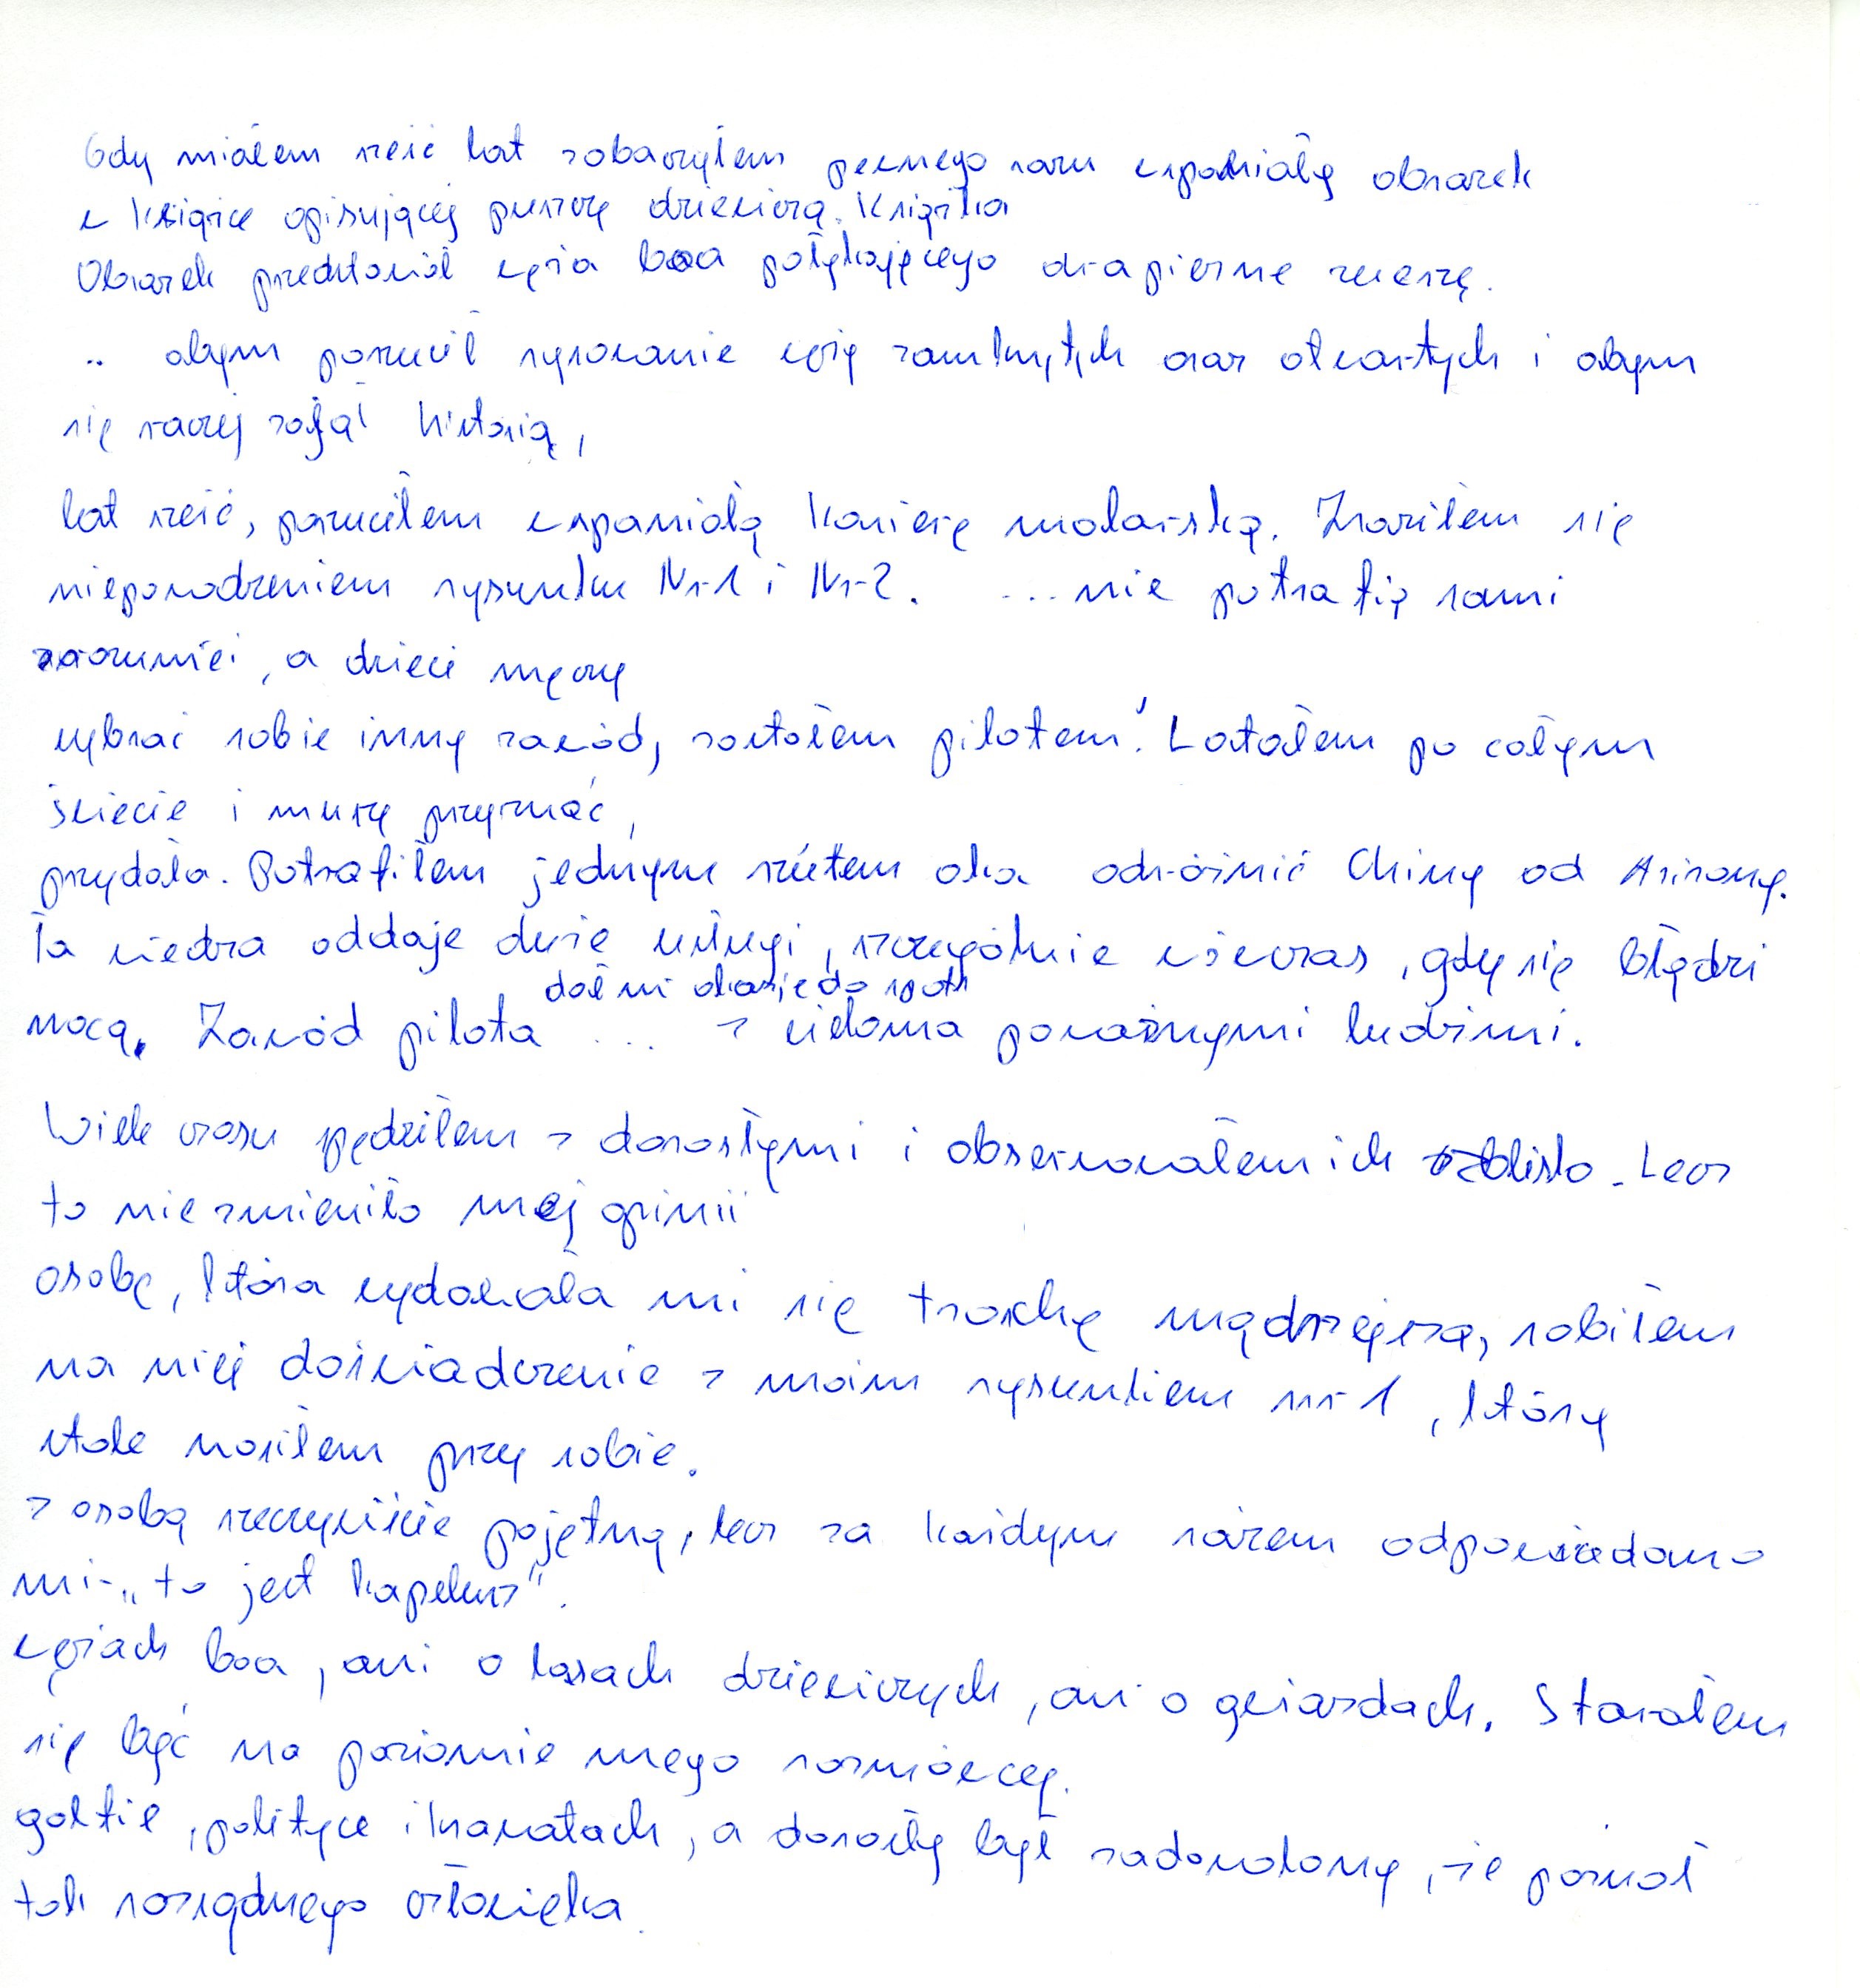 Gdy miałem sześć lat zobaczyłem pewnego razu wspaniały obrazek
w książce opisującej puszczę dziewiczą. Książka
Obrazek przedstawiał węża boa połykającego drapieżne zwierzę.
.. abym porzucił rysowanie węży zamkniętych oraz otwartych i abym
się raczej zajął historią,
lat sześć, porzuciłem wspaniałą karierę malarską. Zraziłem się
niepowodzeniem rysunku Nr 1 i Nr 2. ...nie potrafią sami
zrozumieć, a dzieci męczy
wybrać sobie inny zawód, zostałem pilotem. Latałem po całym
świecie i muszę przyznać,
przydała. Potrafiłem jednym rzutem oka odróżnić Chiny od Arizony.
Ta wiedza oddaje duże usługi, szczególnie wówczas, gdy się błądzi
dał mi okazję do spotk
nocą. Zawód pilota ... z wieloma poważnymi ludźmi.
Wiele czasu spędziłem z dorosłymi i obserwowałem ich z bliska. Lecz
to nie zmieniło mej opinii
osobę, która wydawała mi się troszkę mądrzejszą, robiłem
na niej doświadczenie z moim rysunkiem nr 1, który
stale nosiłem przy sobie.
z osobą rzeczywiście pojętną, lecz za każdym razem odpowiadano
mi - „to jest kapelusz".
wężach boa, ani o lasach dziewiczych, ani o gwiazdach. Starałem
się być na poziomie mego rozmówcy.
golfie, polityce i krawatach, a dorosły był zadowolony, że poznał
tak rozsądnego człowieka.